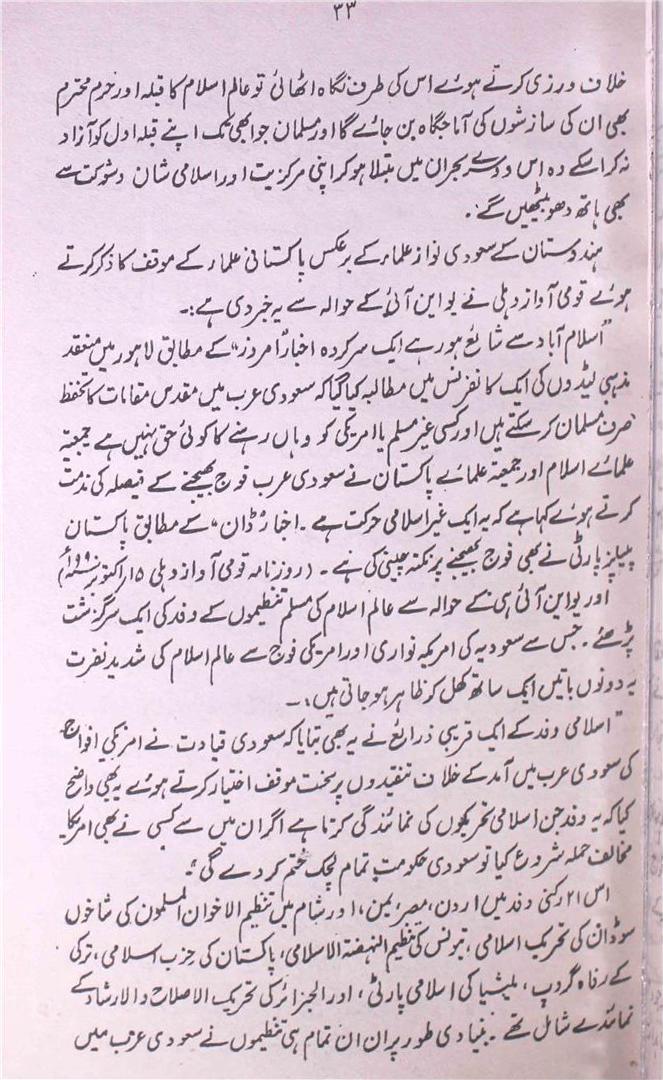 ۳۳
خلاف ورزی کرتے ہوئے اس کی طرف نگاہ اٹھائی تو عالم اسلام کا قبلہ اور حرم محترم
بھی ان کی سازشوں کی آماجگاہ بن جائے گا اور مسلمان جو ابھی تک اپنے قبلہ اول کو آزاد
نہ کرا سکے وہ اس دوسرے بحران میں مبتلا ہو کر اپنی مرکزیت اور اسلامی شان و شوکت سے
بھی ہاتھ دھو بیٹھیں گے۔
ہندوستان کے سعودی نواز علماء کے برعکس پاکستانی علماء کے موقف کا ذکر کرتے
ہوئے قومی آواز دہلی نے یو این آئی کے حوالہ سے یہ خبر دی ہے:۔
"اسلام آباد سے شایع ہو رہے ایک سرکردہ اخبار "امروز" کے مطابق لاہور میں منعقد
مذہبی لیڈروں کی ایک کانفرنس میں مطالبہ کیا گیا کہ سعودی عرب میں مقدس مقامات کا تحفظ
صرف مسلمان کر سکتے ہیں اور کسی غیر مسلم یا امریکی کو وہاں رہنے کا کوئی حق نہیں ہے جمعیۃ
علمائے اسلام اور جمعیۃ علمائے پاکستان نے سعودی عرب فوج بھیجنے کے فیصلہ کی مذمت
کرتے ہوئے کہا ہے کہ یہ ایک غیر اسلامی حرکت ہے۔ اخبار "ڈان" کے مطابق پاکستان
پیپلز پارٹی نے بھی فوج بھیجنے پر نکتہ چینی کی ہے۔ (روزنامہ قومی آواز دہلی ۱۵ اکتوبر ۱۹۹۰ء)
اور یو این آئی ہی کے حوالہ سے عالم اسلام کی مسلم تنظیموں کے وفد کی ایک سرگزشت
پڑھئے۔ جس سے سعودیہ کی امریکہ نوازی اور امریکی فوج سے عالم اسلام کی شدید نفرت
یہ دونوں باتیں ایک ساتھ کھل کر ظاہر ہو جاتی ہیں:۔
"اسلامی وفد کے ایک قریبی ذرایع نے یہ بھی بتایا کہ سعودی قیادت نے امریکی افواج
کی سعودی عرب میں آمد کے خلاف تنقیدوں پر سخت موقف اختیار کرتے ہوئے یہ بھی واضح
کیا کہ یہ وفد جن اسلامی تحریکوں کی نمائندگی کرتا ہے اگر ان میں سے کسی نے بھی امریکا
مخالف حملہ شروع کیا تو سعودی حکومت تمام لچک ختم کر دے گی"۔
اس ۲۱ رکنی وفد میں اردن، مصر، یمن، اور شام میں تنظیم الاخوان المسلمون کی شاخوں
سوڈان کی تحریک اسلامی، تیونس کی تنظیم النہضۃ الاسلامی، پاکستان کی حزب اسلامی، ترکی
کے رفاہ گروپ، ملیشیا کی اسلامی پارٹی، اور الجزائر کی تحریک الاصلاح والارشاد کے
نمائندے شامل تھے۔ بنیادی طور پر ان ان تمام ہی تنظیموں نے سعودی عرب میں